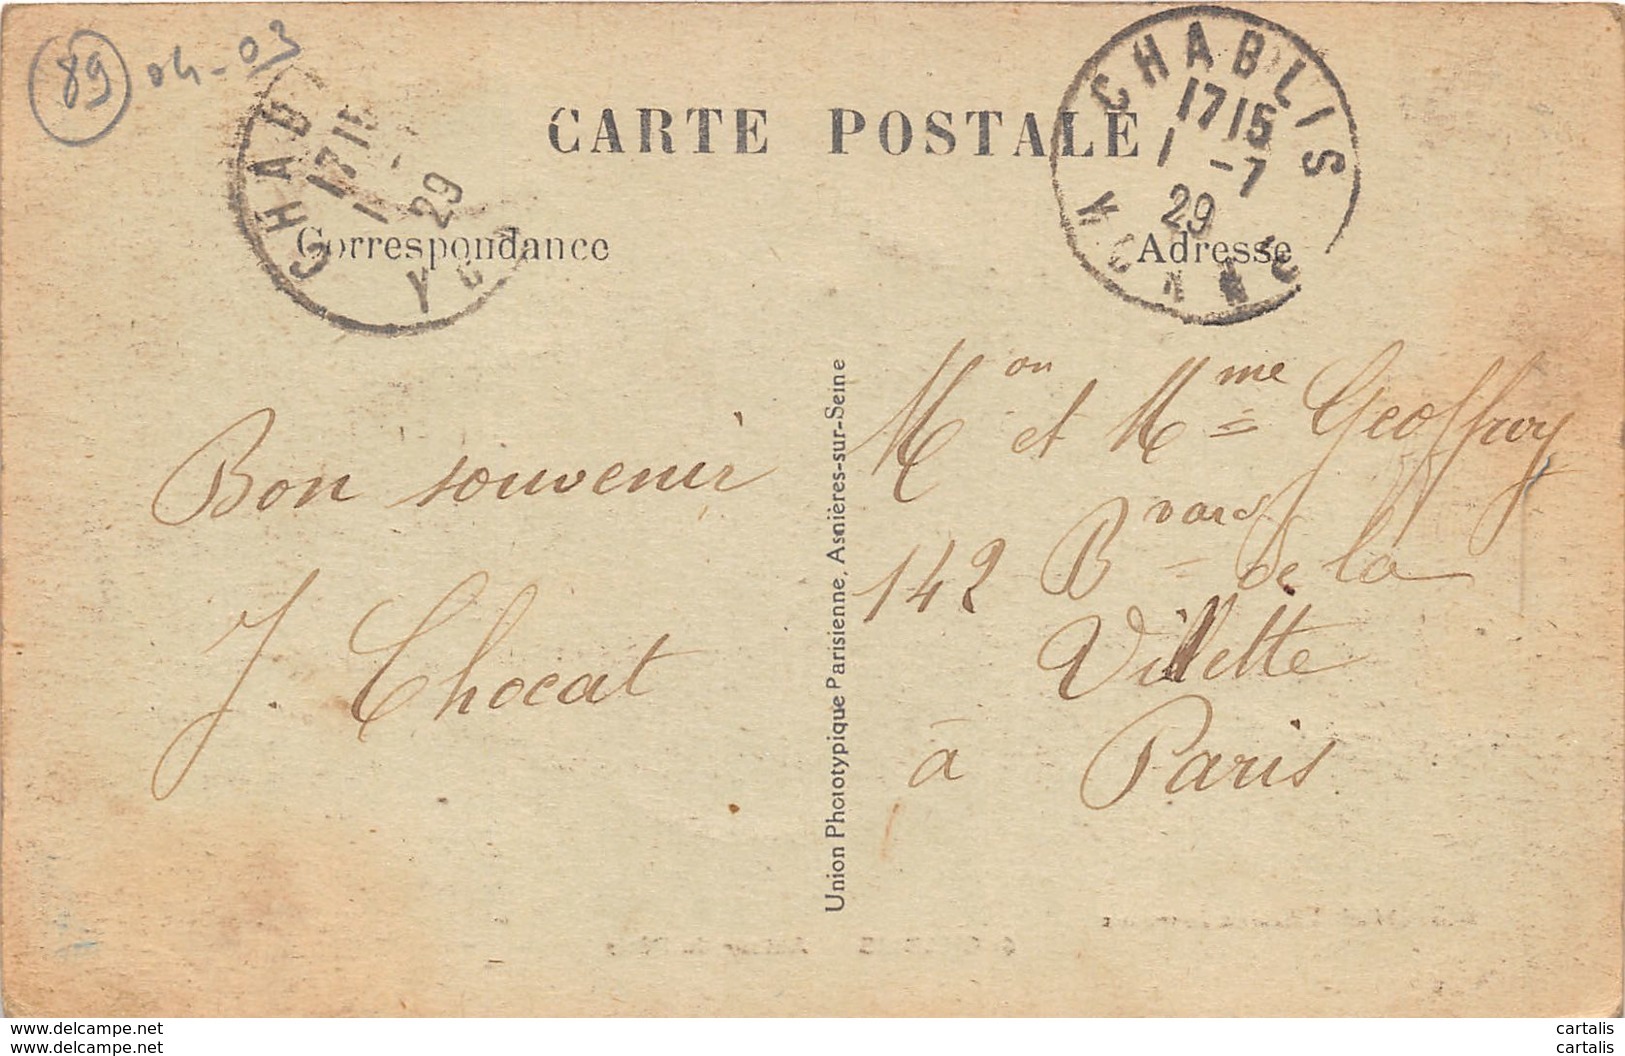 89 04-03
CARTE POSTALE
CHAB
17 15
1 -
29
Y
CHABLIS
17 15
1 -7
29
YONNE
Correspondance
Adresse
Bon souvenir
J. Chocat
Union Phototypique Parisienne, Asnières-sur-Seine
Mon et Mme Geoffroy
142 Bvard de la
Villette
à Paris
www.delcampe.net
cartalis
www.delcampe.net
cartalis